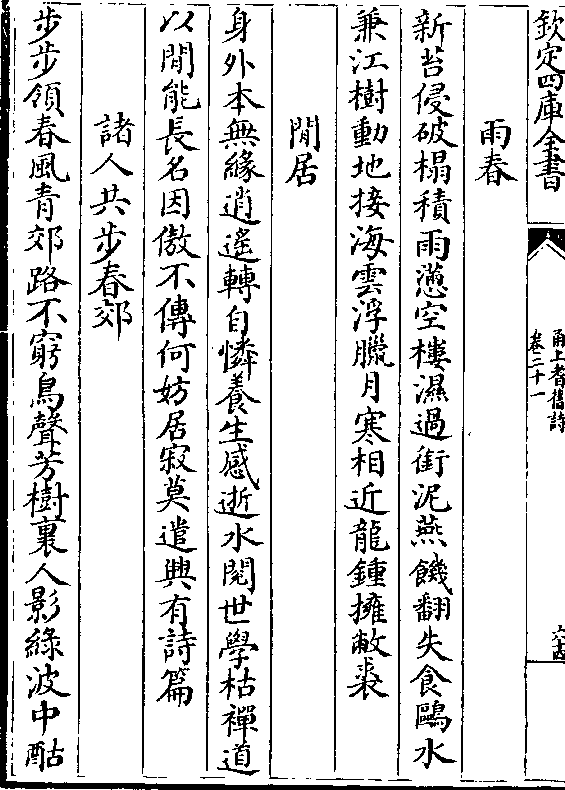 欽定四庫全書
甬上耆舊詩
卷二十一
六十四
雨春
新苔侵破榻積雨懣空樓濕過銜泥燕饑翻失食鷗水
兼江樹動地接海雲浮臘月寒相近龍鍾擁敝裘
閒居
身外本無緣逍遙轉自憐養生感逝水閱世學枯禪道
以閒能長名因傲不傳何妨居寂莫遣興有詩篇
諸人共步春郊
步步領春風青郊路不窮鳥聲芳樹裏人影綠波中酤